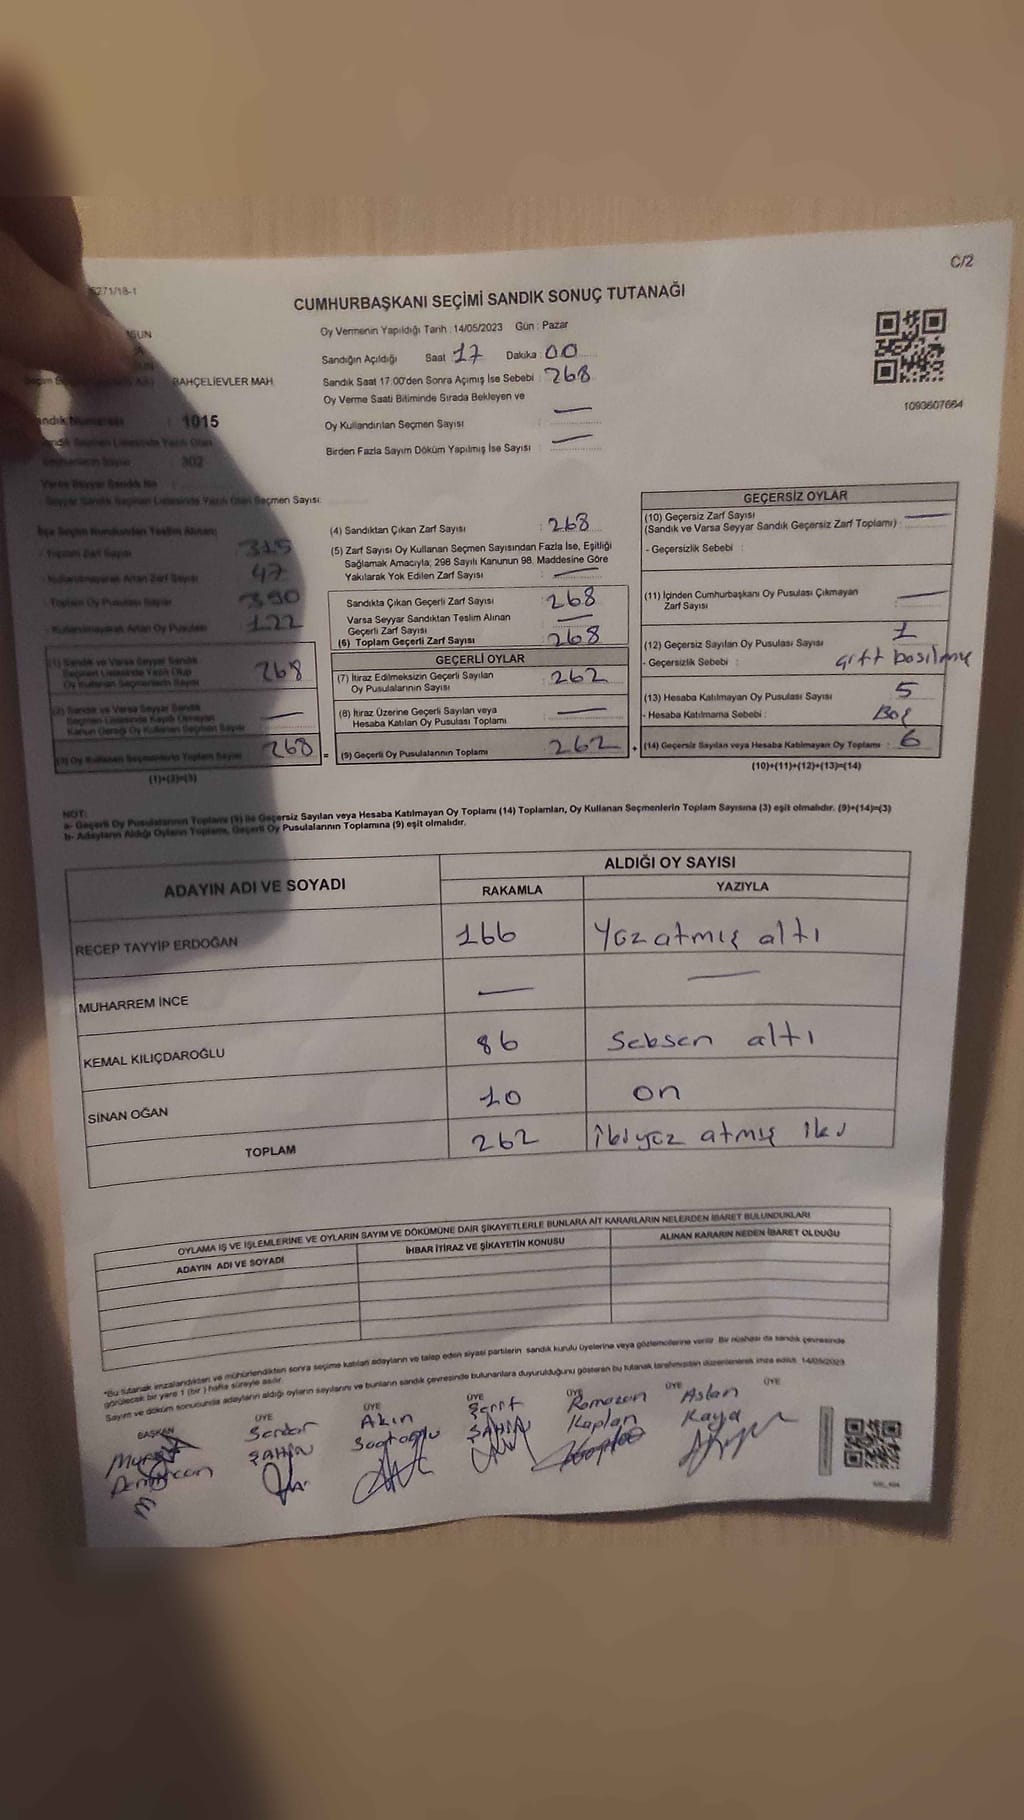 C/2
5271/18-1
CUMHURBAŞKANI SEÇİMİ SANDIK SONUÇ TUTANAĞI
Oy Vermenin Yapıldığı Tarih : 14/05/2023 Gün : Pazar
Sandığın Açıldığı Saat 17 Dakika : 00
Sandık Saat 17:00'den Sonra Açımış İse Sebebi : 268
Oy Verme Saati Bitiminde Sırada Bekleyen ve
Oy Kullandırılan Seçmen Sayısı : —
Birden Fazla Sayım Döküm Yapılmış İse Sayısı : —
1093607664
BAHÇELİEVLER MAH
Sandık Numarası : 1015
Sandık Seçmen Listesinde Yazılı Olan
Seçmenlerin Sayısı 302
Varsa Seyyar Sandık No :
Seyyar Sandık Seçmen Listesinde Yazılı Olan Seçmen Sayısı:
İlçe Seçim Kurulundan Teslim Alınan:
- Toplam Zarf Sayısı : 315
- Kullanılmayarak Artan Zarf Sayısı : 47
- Toplam Oy Pusulası Sayısı : 390
- Kullanılmayarak Artan Oy Pusulası : 122
(1) Sandık ve Varsa Seyyar Sandık
Seçmen Listesinde Yazılı Olup
Oy Kullanan Seçmenlerin Sayısı 268
(2) Sandık ve Varsa Seyyar Sandık
Seçmen Listesinde Kayıtlı Olmayan
Kanun Gereği Oy Kullanan Seçmen Sayısı —
(3) Oy Kullanan Seçmenlerin Toplam Sayısı 268
(1)+(2)=(3)
(4) Sandıktan Çıkan Zarf Sayısı : 268
(5) Zarf Sayısı Oy Kullanan Seçmen Sayısından Fazla İse, Eşitliği
Sağlamak Amacıyla, 298 Sayılı Kanunun 98. Maddesine Göre
Yakılarak Yok Edilen Zarf Sayısı : —
Sandıkta Çıkan Geçerli Zarf Sayısı : 268
Varsa Seyyar Sandıktan Teslim Alınan
Geçerli Zarf Sayısı : —
(6) Toplam Geçerli Zarf Sayısı : 268
GEÇERLİ OYLAR
(7) İtiraz Edilmeksizin Geçerli Sayılan
Oy Pusulalarının Sayısı : 262
(8) İtiraz Üzerine Geçerli Sayılan veya
Hesaba Katılan Oy Pusulası Toplamı : —
= (9) Geçerli Oy Pusulalarının Toplamı : 262 +
GEÇERSİZ OYLAR
(10) Geçersiz Zarf Sayısı —
(Sandık ve Varsa Seyyar Sandık Geçersiz Zarf Toplamı) :
- Geçersizlik Sebebi :
(11) İçinden Cumhurbaşkanı Oy Pusulası Çıkmayan
Zarf Sayısı : —
(12) Geçersiz Sayılan Oy Pusulası Sayısı : 1
- Geçersizlik Sebebi : çift basılmış
(13) Hesaba Katılmayan Oy Pusulası Sayısı : 5
- Hesaba Katılmama Sebebi : Boş
(14) Geçersiz Sayılan veya Hesaba Katılmayan Oy Toplamı : 6
(10)+(11)+(12)+(13)=(14)
NOT:
a- Geçerli Oy Pusulalarının Toplamı (9) ile Geçersiz Sayılan veya Hesaba Katılmayan Oy Toplamı (14) Toplamları, Oy Kullanan Seçmenlerin Toplam Sayısına (3) eşit olmalıdır. (9)+(14)=(3)
b- Adayların Aldığı Oyların Toplamı, Geçerli Oy Pusulalarının Toplamına (9) eşit olmalıdır.
ADAYIN ADI VE SOYADI
ALDIĞI OY SAYISI
RAKAMLA YAZIYLA
RECEP TAYYİP ERDOĞAN 166 Yüz atmış altı
MUHARREM İNCE — —
KEMAL KILIÇDAROĞLU 86 Seksen altı
SİNAN OĞAN 10 on
TOPLAM 262 İkiyüz atmış iki
OYLAMA İŞ VE İŞLEMLERİNE VE OYLARIN SAYIM VE DÖKÜMÜNE DAİR ŞİKAYETLERLE BUNLARA AİT KARARLARIN NELERDEN İBARET BULUNDUKLARI
ADAYIN ADI VE SOYADI İHBAR İTİRAZ VE ŞİKAYETİN KONUSU ALINAN KARARIN NEDEN İBARET OLDUĞU
*Bu tutanak imzalandıktan ve mühürlendikten sonra seçime katılan adayların ve talep eden siyasi partilerin sandık kurulu üyelerine veya gözlemcilerine verilir. Bir nüshası da sandık çevresinde
görülecek bir yere 1 (bir) hafta süreyle asılır.
Sayım ve döküm sonucunda adayların aldığı oyların sayılarını ve bunların sandık çevresinde bulunanlara duyurulduğunu gösteren bu tutanak tarafımızdan düzenlenerek imza edildi. 14/05/2023
BAŞKAN ÜYE ÜYE ÜYE ÜYE ÜYE ÜYE
Murat Serdar Akın Şerif Ramazan Aslan
Demircan ŞAHİN ŞAHİN Kaplan Kaya